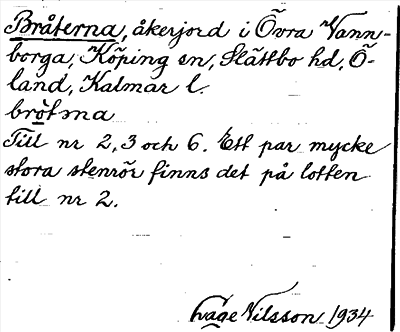 Bråterna, åkerjord i Övra Vann-
borga, Köping sn, Slättbo hd, Ö-
land, Kalmar l.
brötəṇa
Till nr 2, 3 och 6. Ett par mycke
stora stenrör finns det på lotten
till nr 2.
Nilsson 1934